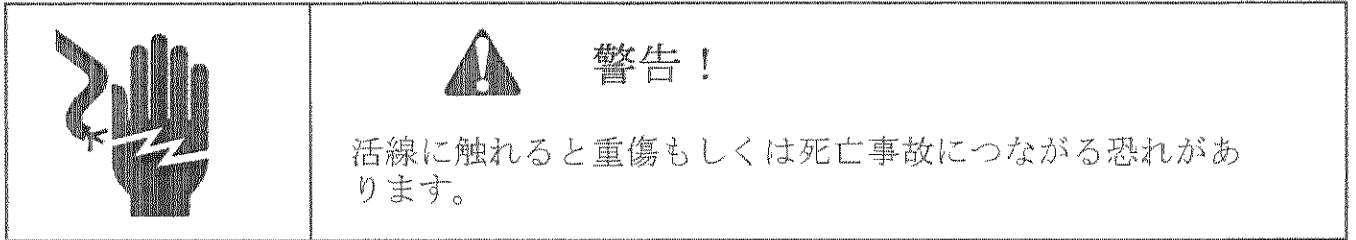 警告！
活線に触れると重傷もしくは死亡事故につながる恐れがあ
ります。